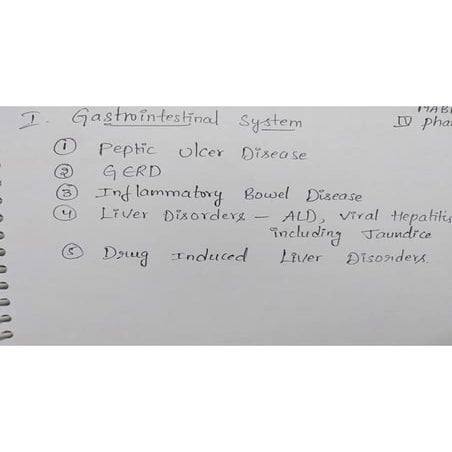 I. Gastrointestinal System
IV pha
① Peptic Ulcer Disease
② GERD
③ Inflammatory Bowel Disease
④ Liver Disorders - ALD, Viral Hepatitis
including Jaundice
⑤ Drug Induced Liver Disorders.